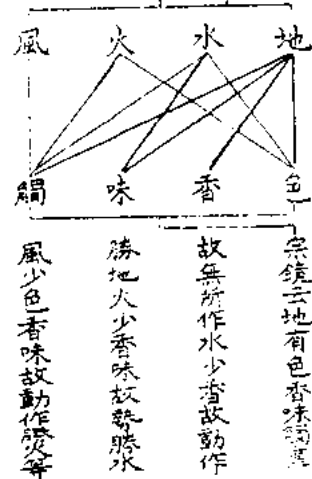 地 水 火 風
色 香 味 觸
宗鏡云地有色香味觸重
故無所作水少香故動作
勝地火少香味故勢勝水
風少色香味故動作勝火等